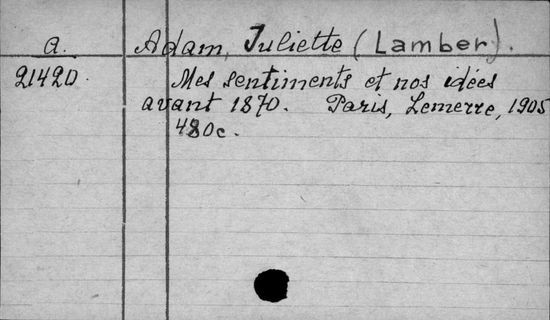 a. Adam, Juliette (Lamber).
21420. Mes sentiments et nos idées
avant 1870. Paris, Lemerre, 1905
480c.